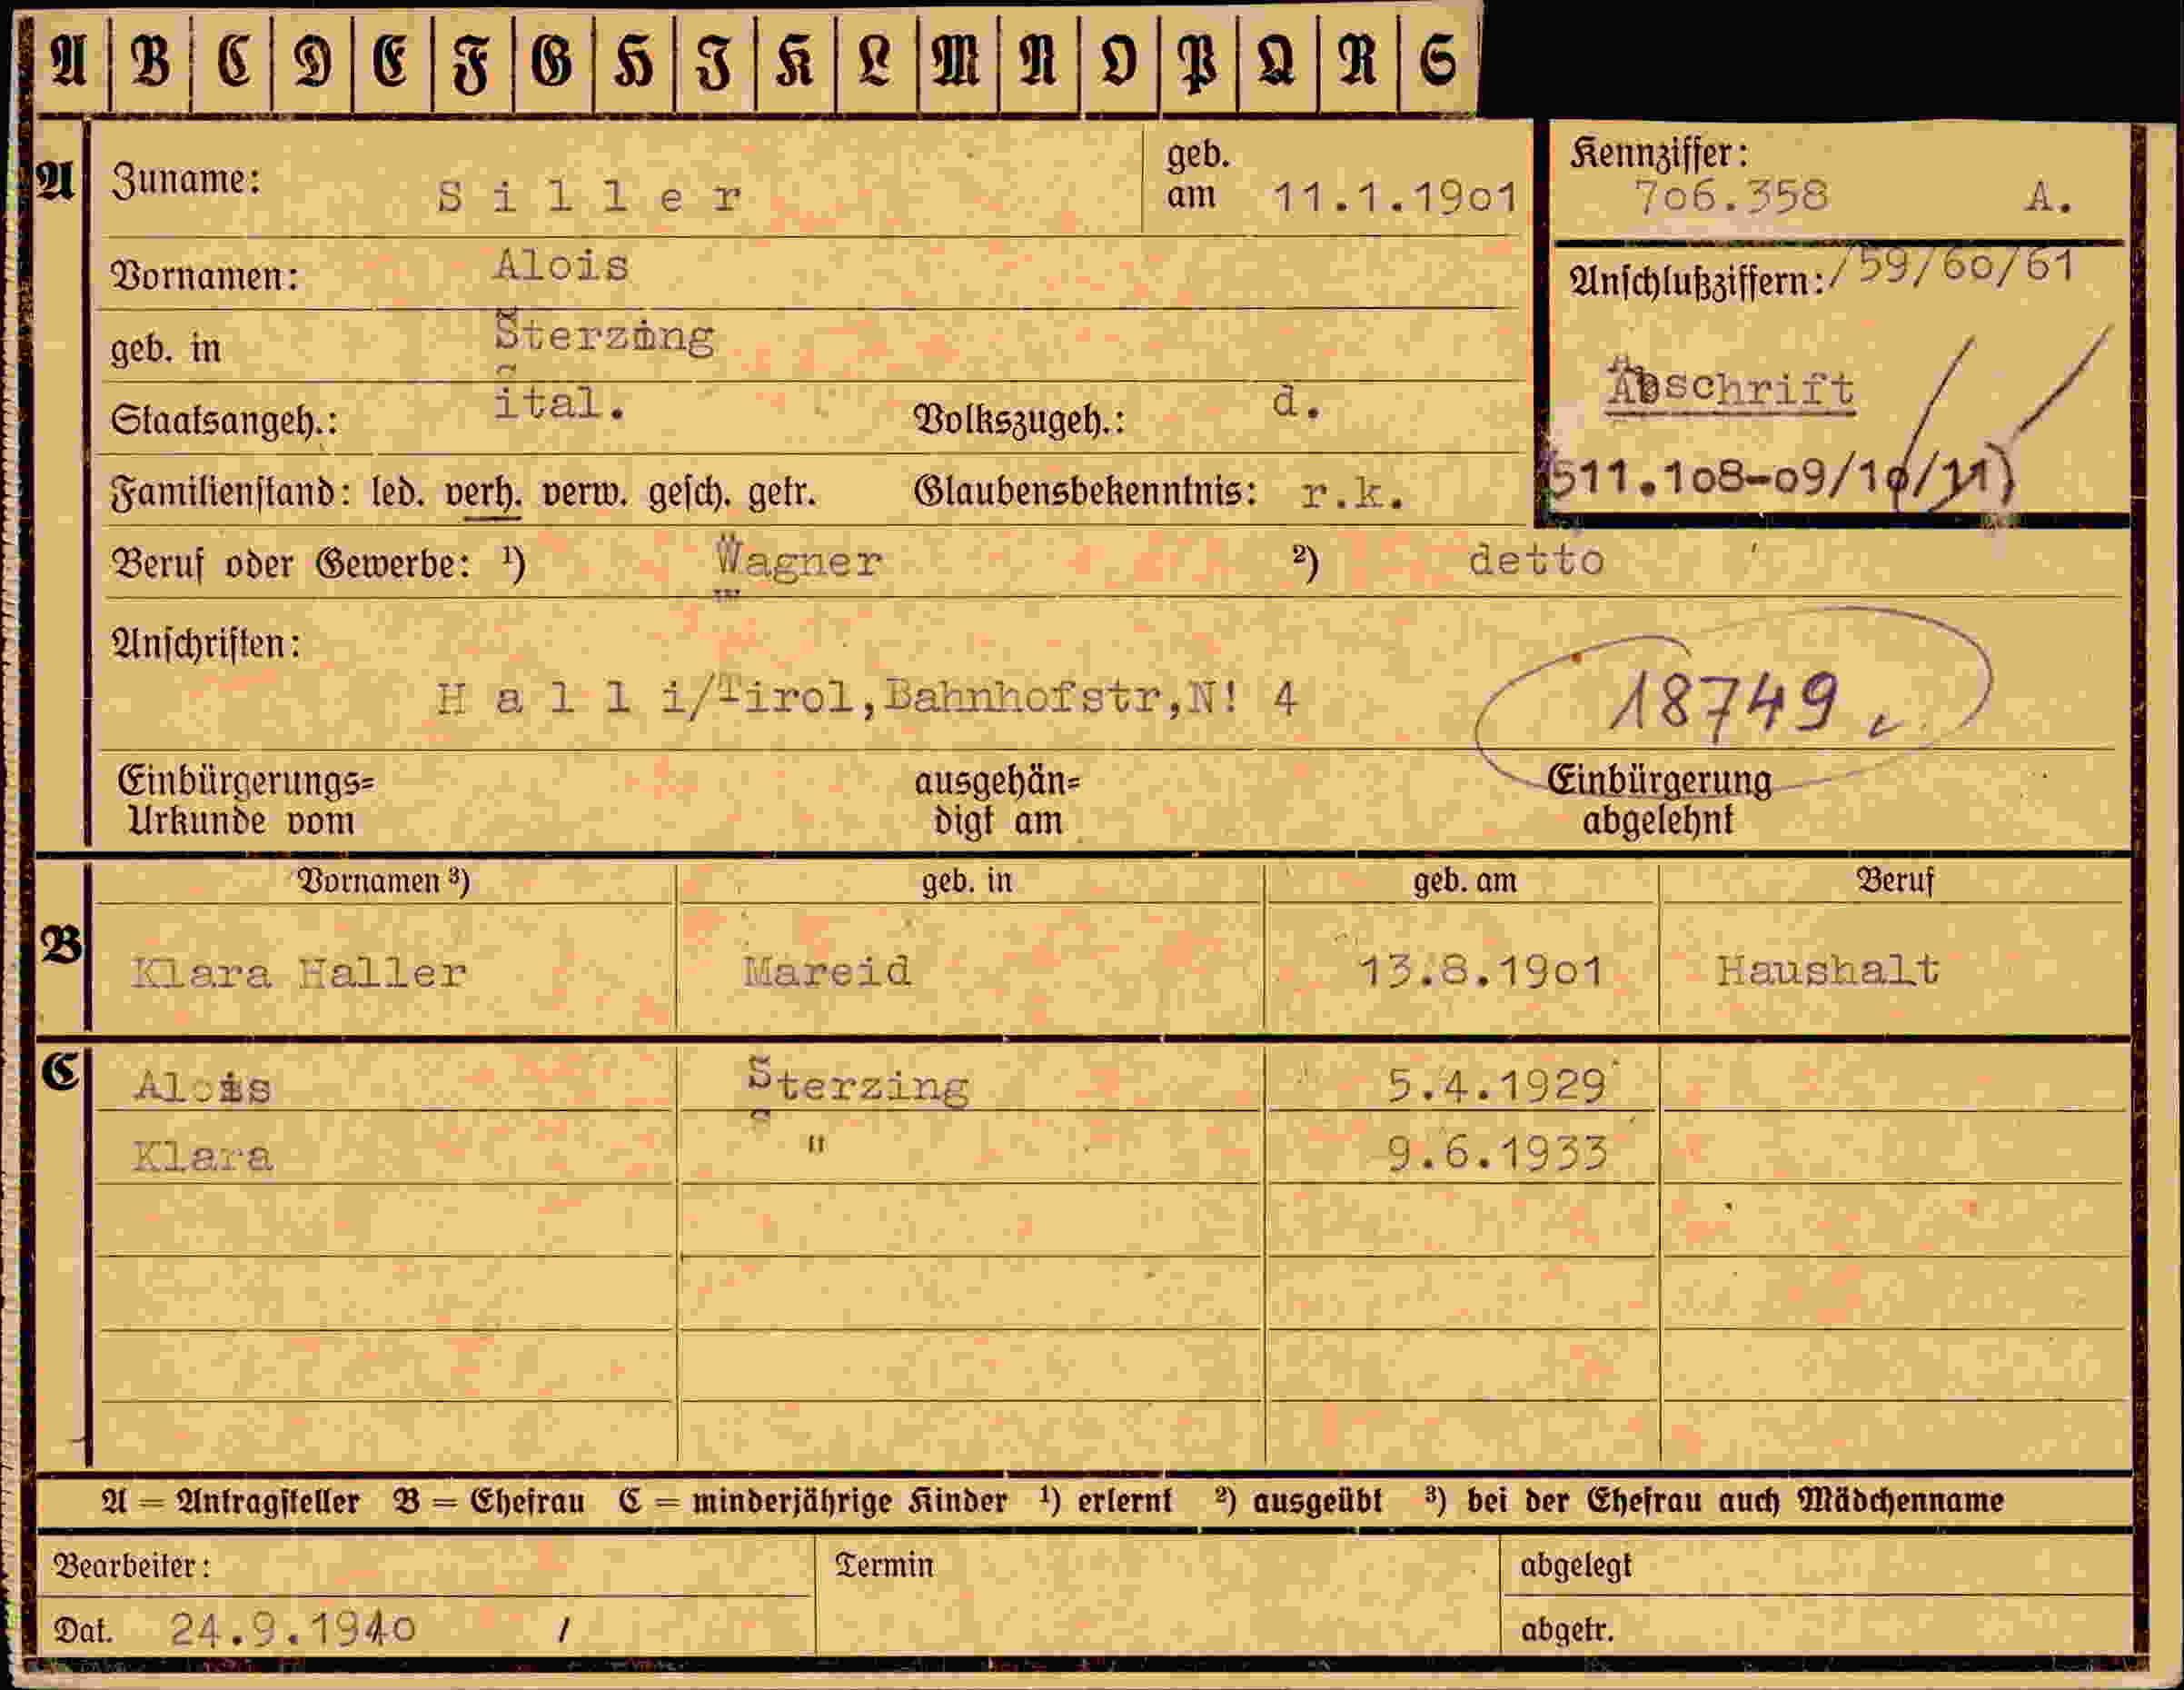 A B C D E F G H I K L M N O P Q R S
A Zuname: Siller geb. am 11.1.1901
Kennziffer: 706.358 A.
Vornamen: Alois
Anschlußziffern: /59/60/61
geb. in Sterzing
Abschrift
Staatsangeh.: ital. Volkszugeh.: d.
Familienstand: led. verh. verw. gesch. getr. Glaubensbekenntnis: r.k.
(511.108-09/10/11)
Beruf oder Gewerbe: ¹) Wagner ²) detto
Anschriften:
Hall i/Tirol,Bahnhofstr,N! 4
18749
Einbürgerungs=
Urkunde vom
ausgehän=
digt am
Einbürgerung
abgelehnt
Vornamen ³) geb. in geb. am Beruf
B Klara Haller Mareid 13.8.1901 Haushalt
C Alois Sterzing 5.4.1929
Klara " 9.6.1933
A = Antragsteller B = Ehefrau C = minderjährige Kinder ¹) erlernt ²) ausgeübt ³) bei der Ehefrau auch Mädchenname
Bearbeiter: Termin abgelegt
Dat. 24.9.1940 / abgetr.